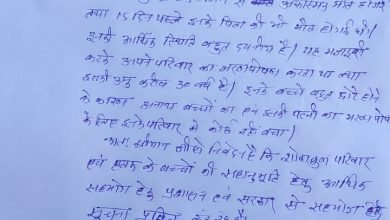 आकस्मिक मौत होगई
तथा 15 दिन पहले इनके पिता की भी मौत होगई थी।
इनकी आर्थिक स्थिति बहुत दयनीय है। यह मजदूरी
करके अपने परिवार का भरणपोषण करता था तथा
इसकी उम्र करीब 30 वर्ष है। इनके बच्चे बहुत छोटे होने
के कारण अनाथ बच्चों का एवं इनकी पत्नी का भरण पोषण
के लिए इनके परिवार में कोई नहीं बचा।
अतः श्रीमान से निवेदन है कि शोकाकुल परिवार
एवं मृतक के बच्चों की सहानुभूति हेतु आर्थिक
सहयोग हेतु प्रशासन एवं सरकार से सहयोग
सूचना